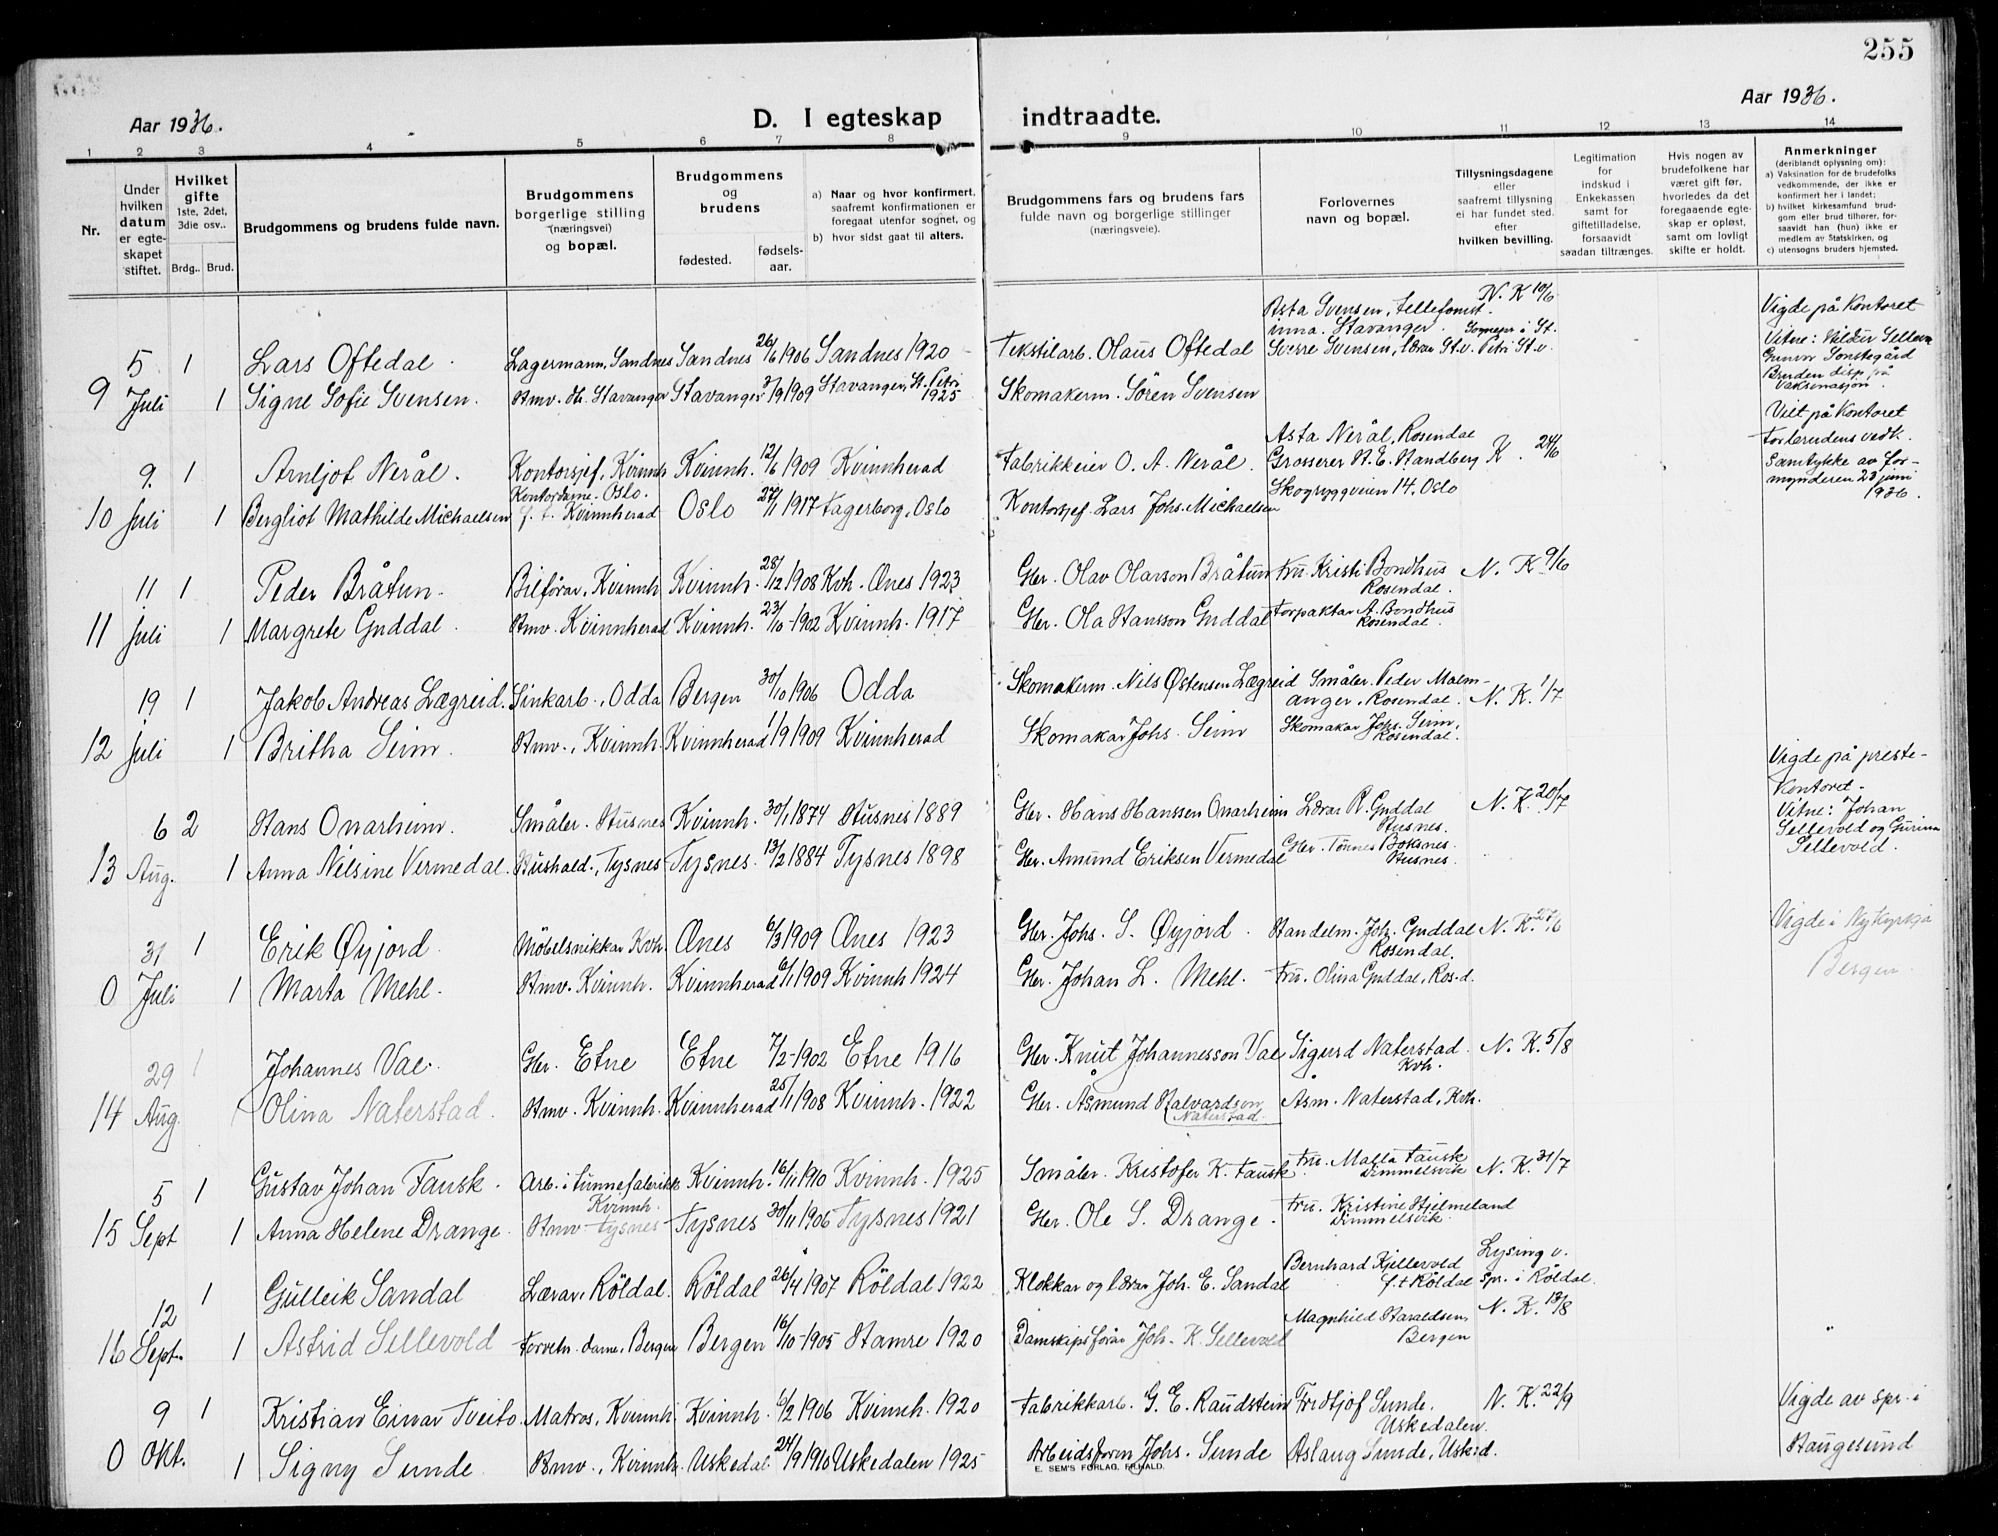 255
Aar 1936.
D. I egteskap indtraadte.
Aar 1936.
1 2 3 4 5 6 7 8 9 10 11 12 13 14
Nr.
Under hvilken datum er egteskapet stiftet.
Hvilket gifte 1ste, 2det, 3die osv..
Brdg.. Brud.
Brudgommens og brudens fulde navn.
Brudgommens borgerlige stilling (næringsvei) og bopæl.
Brudgommens og brudens
fødested.
fødsels-aar.
a) Naar og hvor konfirmert. saafremt konfirmationen er foregaat utenfor sognet, og
b) hvor sidst gaat til alters.
Brudgommens fars og brudens fars fulde navn og borgerlige stillinger (næringsveie).
Forlovernes navn og bopæl.
Tillysningsdagene eller saafremt tillysning ei har fundet sted. efter hvilken bevilling.
Legitimation for indskud i Enkekassen samt for giftetilladelse, forsaavidt saadan tiltrænges.
Hvis nogen av brudefolkene har været gift før, hvorledes da det foregaaende egteskap er opløst, samt om lovligt skifte er holdt.
Anmerkninger (deriblandt oplysning om):
a) Vaksination for de brudefolks vedkommende, der ikke er konfirmert her i landet;
b) hvilket kirkesamfund brudgom eller brud tilhører, forsaavidt han (hun) ikke er medlem av Statskirken, og
c) utensogns bruders hjemsted.
Asta Svensen, Tellefonist- N. K 10/6 Vigde på Kontoret
inna. Stavanger. Sogneprr i St. Vitne: Hildur Sellevo
5 1 Lars Oftedal. Lagermann, Sandnes Sandnes 26/6 1906 Sandnes 1920 Tekstilarb. Olaus Oftedal Sverre Svensen, lærar St.v. Petri St.v. Gunvor Sonstegård
Bruden disp på
9 Juli 1 Signe Sofie Svensen. Hmv. Hl. Stavanger Stavanger 3/9 1909 Stavanger, St. Petri 1925 Skomakerm. Sören Svensen Vaksinasjon.
Vilt på Kontoret
Asta Nerål, Rosendal For brudens vedk.
9. 1 Arnljot Nerål. Kontorsjef, Kvinnh Kvinnh. 12/6 1909 Kvinnherad Fabrikkeier O. A. Nerål. Grosserer H. E. Standberg K. 24/6 Samtykke av for-
Kontordame. Oslo. Skogryggveien 14. Oslo mynderen 23 juni
10 Juli 1 Bergliot Mathilde Michaelsen f. t. Kvinnherad Oslo 27/1 1917 Fagerborg, Oslo Kontorsjef. Lars Johs. Michaelsen 1936.
11 1 Peder Bråtun. Bilførar, Kvinnh Kvinnh. 28/12 1908 Kvh. Ænes 1923 Gbr. Olav Olarson Bråtun Fru Kristi Bondhus N. K 9/6
Rosendal.
11 Juli 1 Margrete Guddal. Hmv. Kvinnherad Kvinnh. 23/10-1902 Kvinnh. 1917 Gbr. Ola Hansson Guddal Forpaktar A. Bondhus
Rosendal.
19 1 Jakob Andreas Lægreid. Sinkarb., Odda Bergen 30/10 1906 Odda Skomakerm. Nils Østensen Lægreid Småbr. Peder Malm-
anger. Rosendal. N. K. 1/7
12 Juli 1 Britha Seim. Hmv., Kvinnh. Kvinnherad 1/9 1909 Kvinnherad Skomakar Johs. Seim Skomakar Johs. Seim,
Rosendal.
Vigde på preste-
kontoret.
6 2 Hans Onarheim. Småbr. Husnes Kvinnh. 30/1 1874 Husnes 1889 Gbr. Hans Hanssen Onarheim Lærar R. Guddal N. K. 20/7 Vitne: Johan
Husnes. Sellevold og Gurina
13 Aug. 1 Anna Nilsine Vermedal. Hushald., Tysnes Tysnes. 13/2 1884 Tysnes 1898 Gbr. Amund Eriksen Vermedal Gbr. Tönnes Boksnes Sellevold.
Husnes.
31 1 Erik Øyjord. Möbelsnikkar Kvh. Ænes 6/3 1909 Ænes 1923 Gbr. Johs. S. Øyjord. Handelm. Joh. Guddal N. K. 27/6 Vigde i Nykyrkja
Rosendal. Bergen.
0 Juli 1 Marta Mehl. Hmv. Kvinnh. Kvinnherad 6/1 1909 Kvinnh 1924 Gbr. Johan L. Mehl. Fru. Olina Guddal, Ros-d.
29 1 Johannes Vae. Gbr. Etne Etne 7/2-1902 Etne 1916 Gbr. Knut Johannesson Vae Sigurd Naterstad. N. K. 5/8
Kvh.
14 Aug. 1 Olina Naterstad. Hmv. Kvinnh. Kvinnherad 25/1 1908 Kvinnh. 1922 Gbr. Åsmund Halvardson Åsm. Naterstad, Kvh.
Naterstad.
5 1 Gustav Johan Fausk. Arb. i tunnefabrikk Kvinnh. 16/11 1910 Kvinnh. 1925 Småbr. Kristofer K. Fausk Fru. Malla Fausk N. K. 31/7
Kvinnh. Dimmelsvik
15 Sept 1 Anna Helene Drange. Hmv Tysnes Tysnes 30/11 1906 Tysnes 1921 Gbr. Ole S. Drange. Fru. Kristine Hjelmeland
Dimmelsvik.
Bernhard Kjellevold Lysing v.
12 1 Gulleik Sandal Lærar, Röldal. Röldal 26/4 1907 Röldal 1922 Klokkar og lærar Joh. E. Sandal f. t Röldal spr. i Röldal.
Magnhild Haraldsen, N. K. 13/8
16 Sept. 1 Astrid Sellevold Forretn. dame, Bergen Bergen 16/10-1905 Hamre 1920 Damskipsförar Joh. K. Sellevold Bergen "
9 1 Kristian Einar Tveito. Matros, Kvinnh. Kvinnh. 6/2 1906 Kvinnh. 1920 Fabrikkarb. G. E. Raudstein Fridtjof Sunde. N. K. 22/9 Vigde av spr. i
Uskedalen.
0 Okt. 1 Signy Sunde Hmv., Kvinnh. Uskedal. 24/9 1910 Uskedalen 1925 Arbeidsform Johs. Sunde Aslaug Sunde, Usked. Haugesund
E. SEM'S FORLAG. FR.HALD.